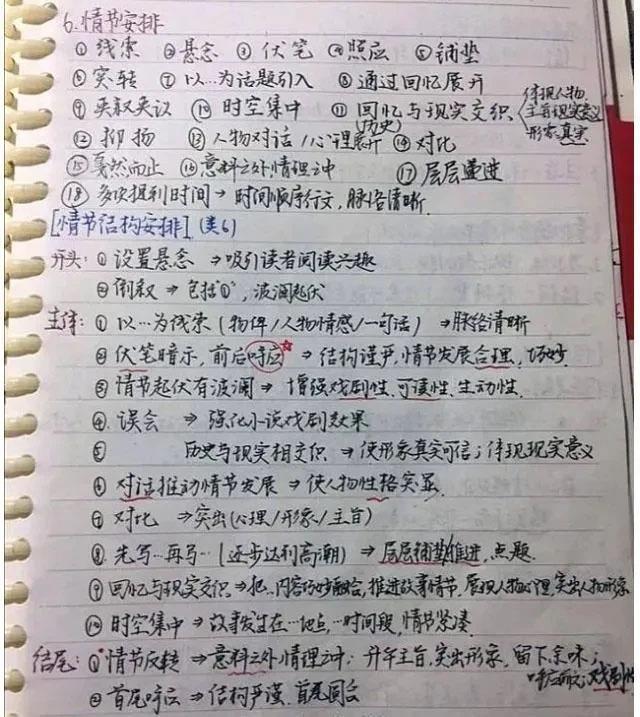 6. 情节安排
① 线索 ② 悬念 ③ 伏笔 ④ 照应 ⑤ 铺垫
⑥ 突转 ⑦ 以…为话题引入 ⑧ 通过回忆展开
⑨ 夹叙夹议 ⑩ 时空集中 ⑪ 回忆与现实交织(历史) {体现人物 主旨现实意义 形象真实
⑫ 抑扬 ⑬ 人物对话/心理展开 ⑭ 对比
⑮ 戛然而止 ⑯ 意料之外情理之中 ⑰ 层层递进
⑱ 多次提到时间→时间顺序行文,脉络清晰.
[情节结构安排] (类6)
开头: ① 设置悬念 → 吸引读者阅读兴趣
② 倒叙 → 包括①,波澜起伏
主体: ① 以…为线索 (物件/人物情感/一句话) → 脉络清晰
② 伏笔暗示,前后呼应☆ → 结构严谨,情节发展合理,巧妙
③ 情节起伏有波澜 → 增强戏剧性、可读性、生动性.
④ 误会 → 强化小说戏剧效果
⑤ 历史与现实相交织 → 使形象真实可信;体现现实意义
⑥ 对话推动情节发展 → 使人物性格突显
⑦ 对比 → 突出(心理/形象/主旨)
⑧ 先写…再写…(逐步达到高潮) → 层层铺垫推进,点题.
⑨ 回忆与现实交织 → 把…内容巧妙融合,推进故事情节,展现人物心理,突出人物形象
⑩ 时空集中 → 故事发生在…地点,…时间段,情节紧凑.
结尾: ① 情节反转 → 意料之外情理之中;升华主旨,突出形象,留下余味;
呼应前文;戏剧性
② 首尾呼应 → 结构严谨.首尾圆合